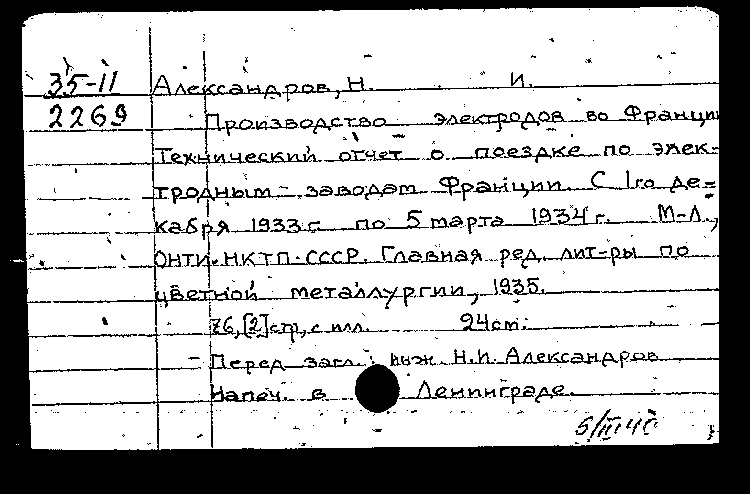 35-11 Александров, Н. И.
2269 Производство электродов во Франции
Технический отчет о поездке по элек-
тродным заводам Франции. С 1го де-
кабря 1933 г. по 5 марта 1934 г. М-Л.,
ОНТИ-НКТП-СССР. Главная ред. лит-ры по
цветной металлургии, 1935.
76, [2] стр, с илл. 24 cm.
Перед загл.: инж. Н.И. Александров
Напеч. в Ленинграде.
5/III 40